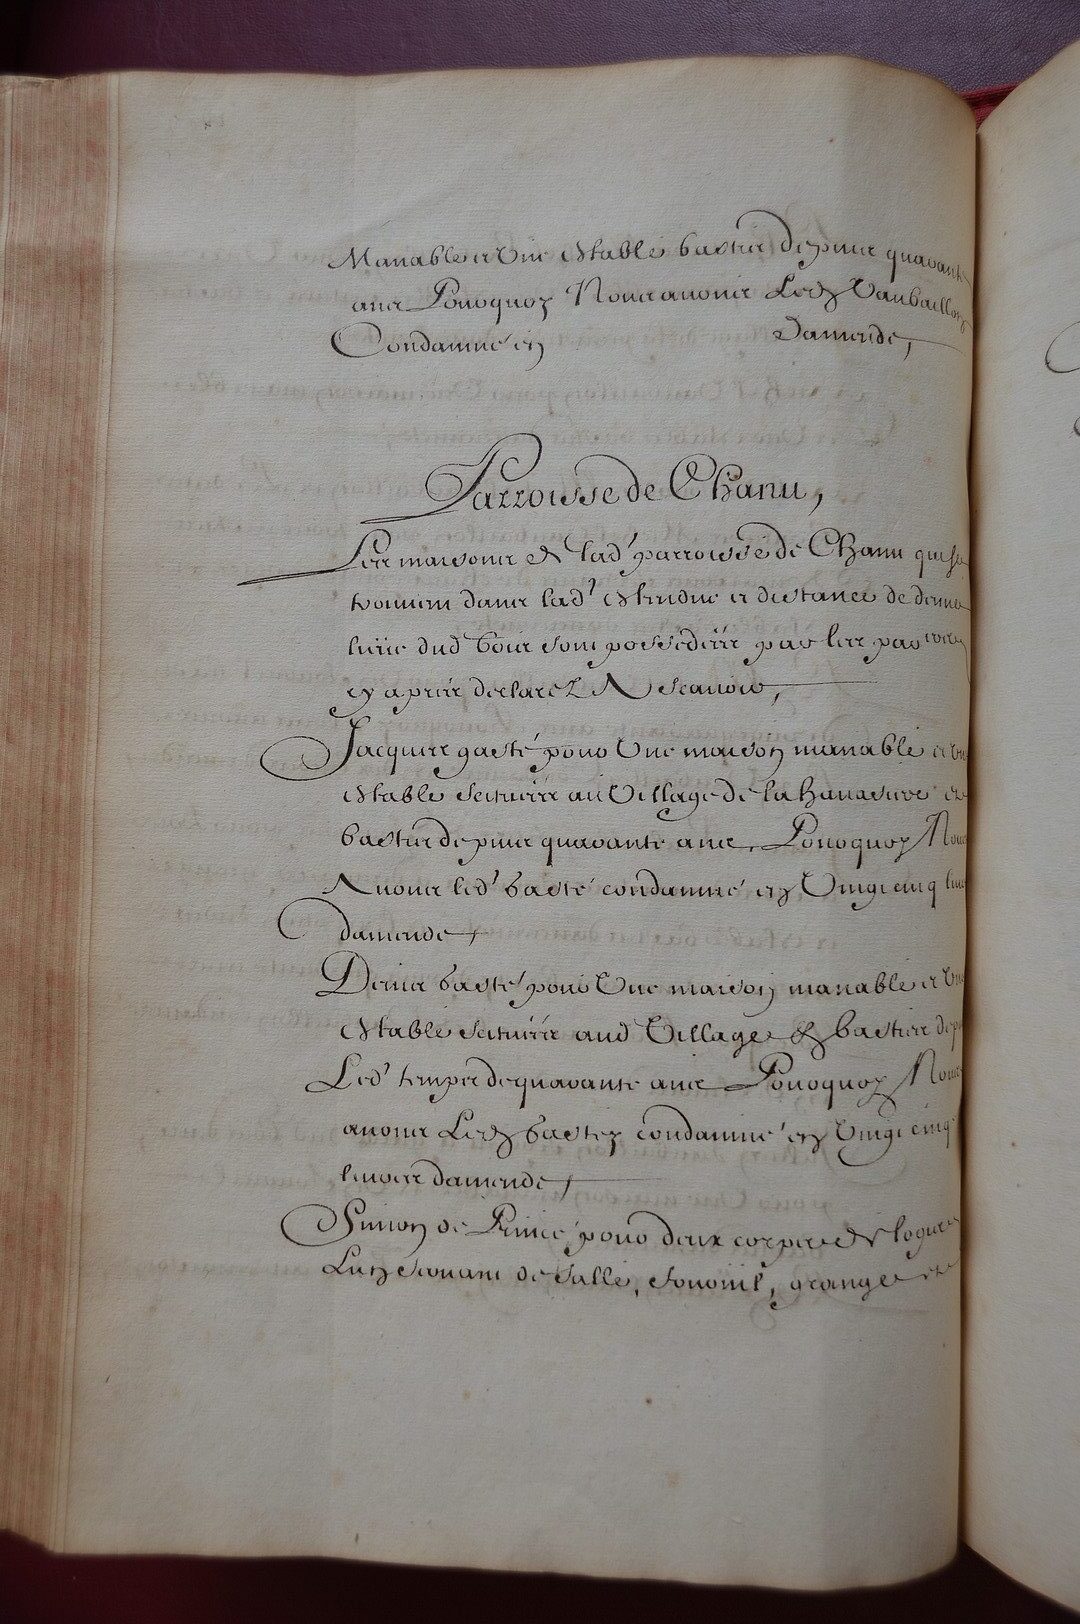 Manable et Une estable basties depuis quarante
ans Pourquoy Nous avons Led. Vaubaillon
Condamné en Damende,
Parroisse de Chanu,
Les maisons de lad' parroisse de Chanu qui se
trouvent dans lad' estendue et distance de demie
lieüe dud bois sont possedéés par les par.ers
cy apres declarez A Scavoir,
Jacques gasté pour Une maison manable et Une
estable scituéés au Village de la hanasiere et
basties depuis quarante ans, Pourquoy Nous
Avons led' Gasté condamné en Vingt cinq livres
damende,
Denis Gasté pour Une maison manable et Une
estable scituéés aud Village et basties depuis
Led' temps de quarante ans Pourquoy Nous
avons Led. Gasté condamné en Vingt cinq
livres damende,
Simon de Prince pour deux corps de logis
Lun servant de salle, fournil, grange et